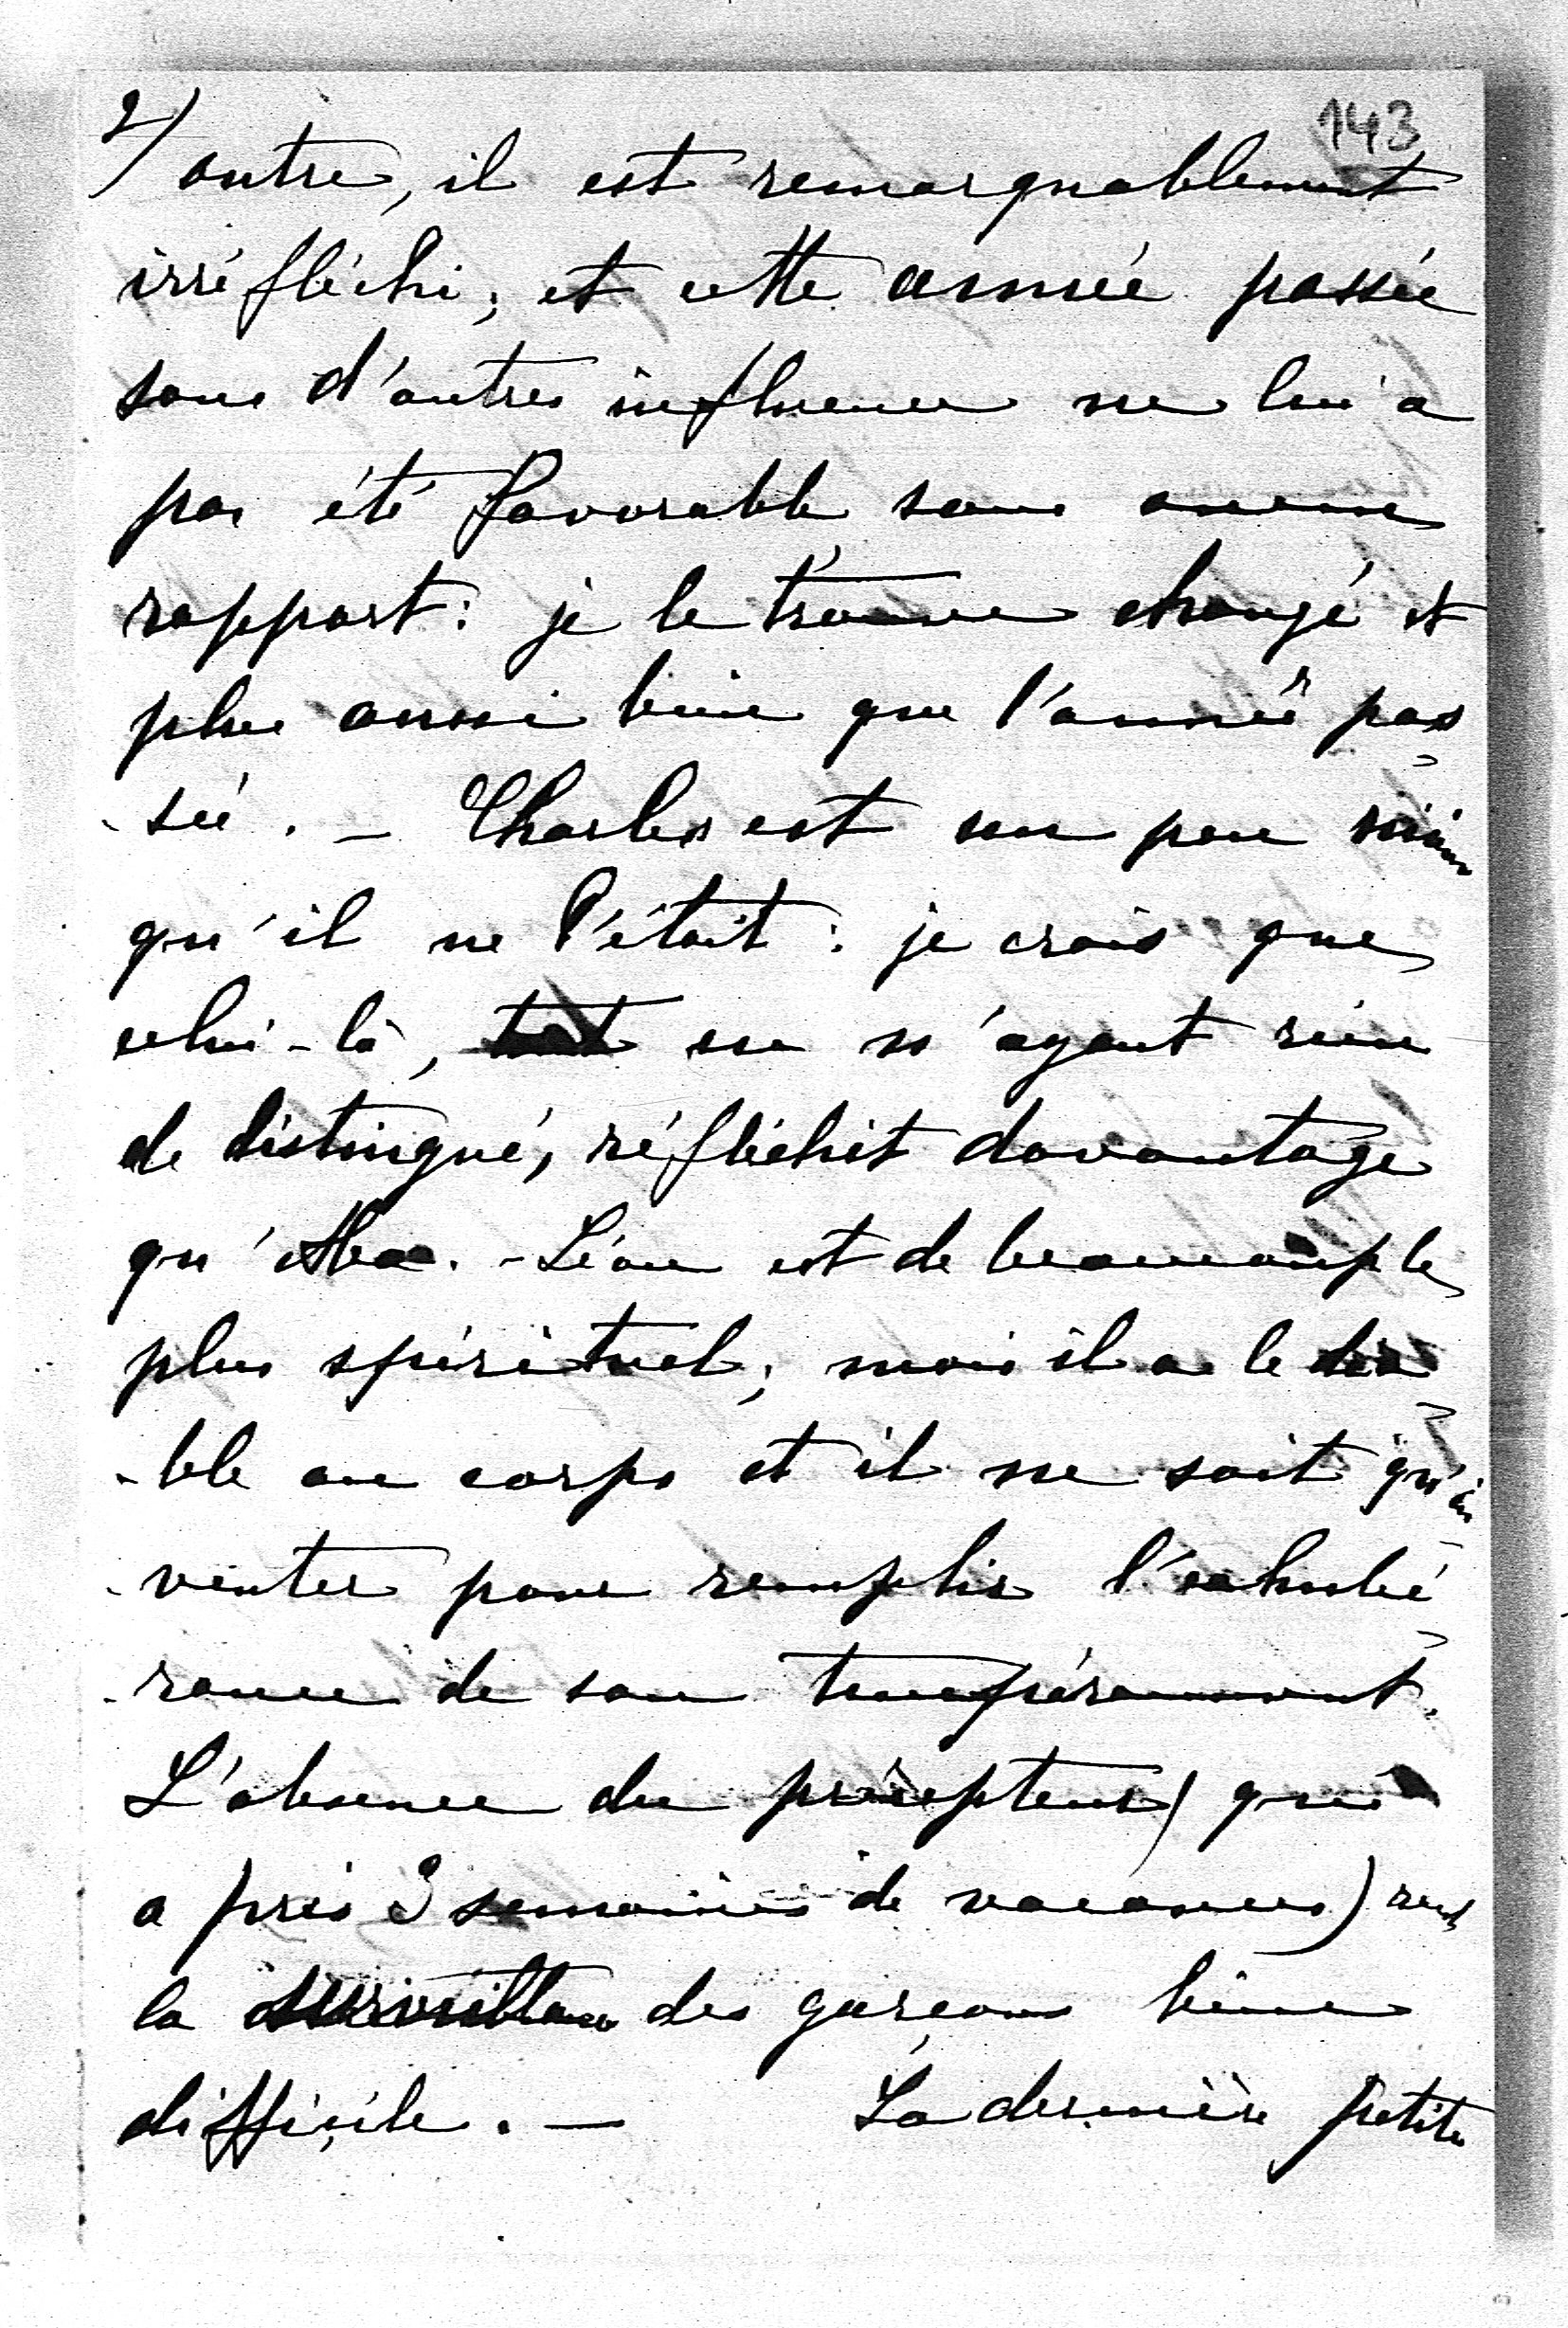 143
2/ outre, il est remarquablement
irréfléchi; et cette année passée
sous d'autres influences ne lui a
pas été favorable sous aucun
rapport: je le trouve changé et
plus aussi bien que l'année pas
-sée. - Charles est un peu mieux
qu'il ne l'était: je crois que
celui-là, tout en n'ayant rien
de distingué, réfléchit davantage
qu'Alex. - Léon est de beaucoup le
plus spirituel; mais il a le dia
-ble au corps et il ne sait qu'in
-venter pour remplir l'exhubé
-rance de son tempérament.
L'absence du précepteur (qui
a pris 3 semaines de vacances) rend
la surveillance des garçons bien
difficile. - La dernière petite